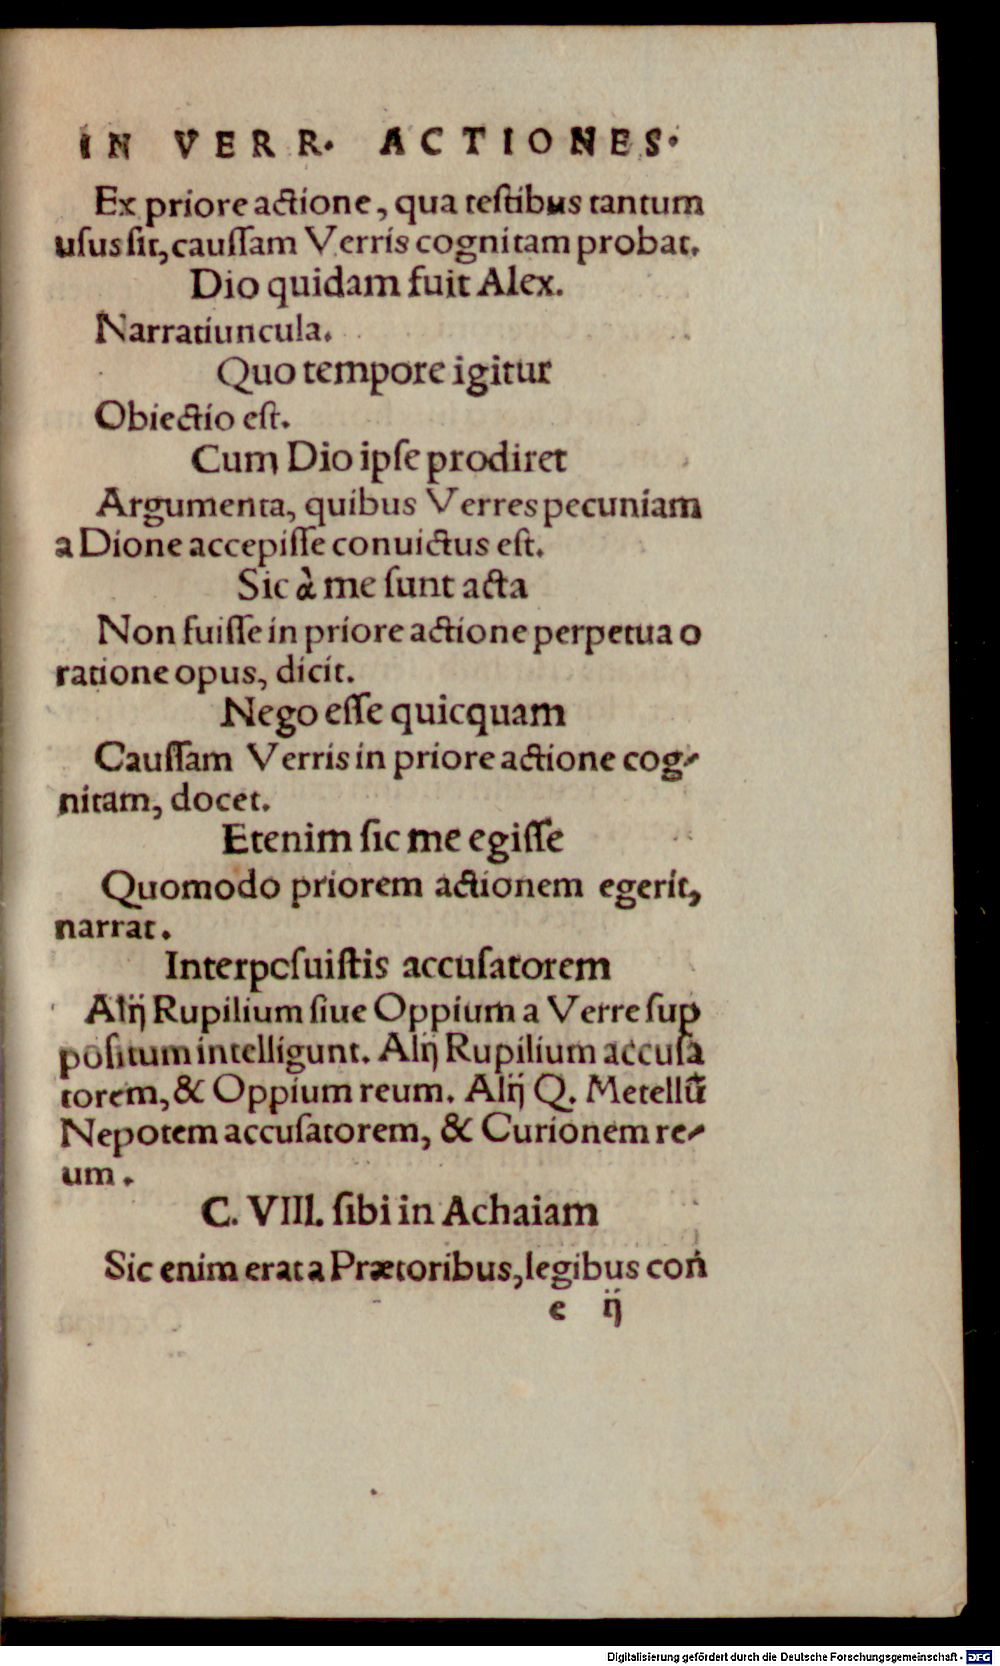 IN VERR. ACTIONES.
Ex priore actione, qua teſtibus tantum
uſus ſit, cauſſam Verris cognitam probat.
Dio quidam fuit Alex.
Narratiuncula.
Quo tempore igitur
Obiectio eſt.
Cum Dio ipſe prodiret
Argumenta, quibus Verres pecuniam
a Dione accepiſſe conuictus eſt.
Sic à me ſunt acta
Non fuiſſe in priore actione perpetua o
ratione opus, dicit.
Nego eſſe quicquam
Cauſſam Verris in priore actione cog-
nitam, docet.
Etenim ſic me egiſſe
Quomodo priorem actionem egerit,
narrat.
Interpoſuiſtis accuſatorem
Alij Rupilium ſiue Oppium a Verre ſup
poſitum intelligunt. Alij Rupilium accuſa
torem, & Oppium reum. Alij Q. Metellū
Nepotem accuſatorem, & Curionem re-
um.
C. VIII. ſibi in Achaiam
Sic enim erat a Prætoribus, legibus con
e ij
Digitalisierung gefördert durch die Deutsche Forschungsgemeinschaft - DFG